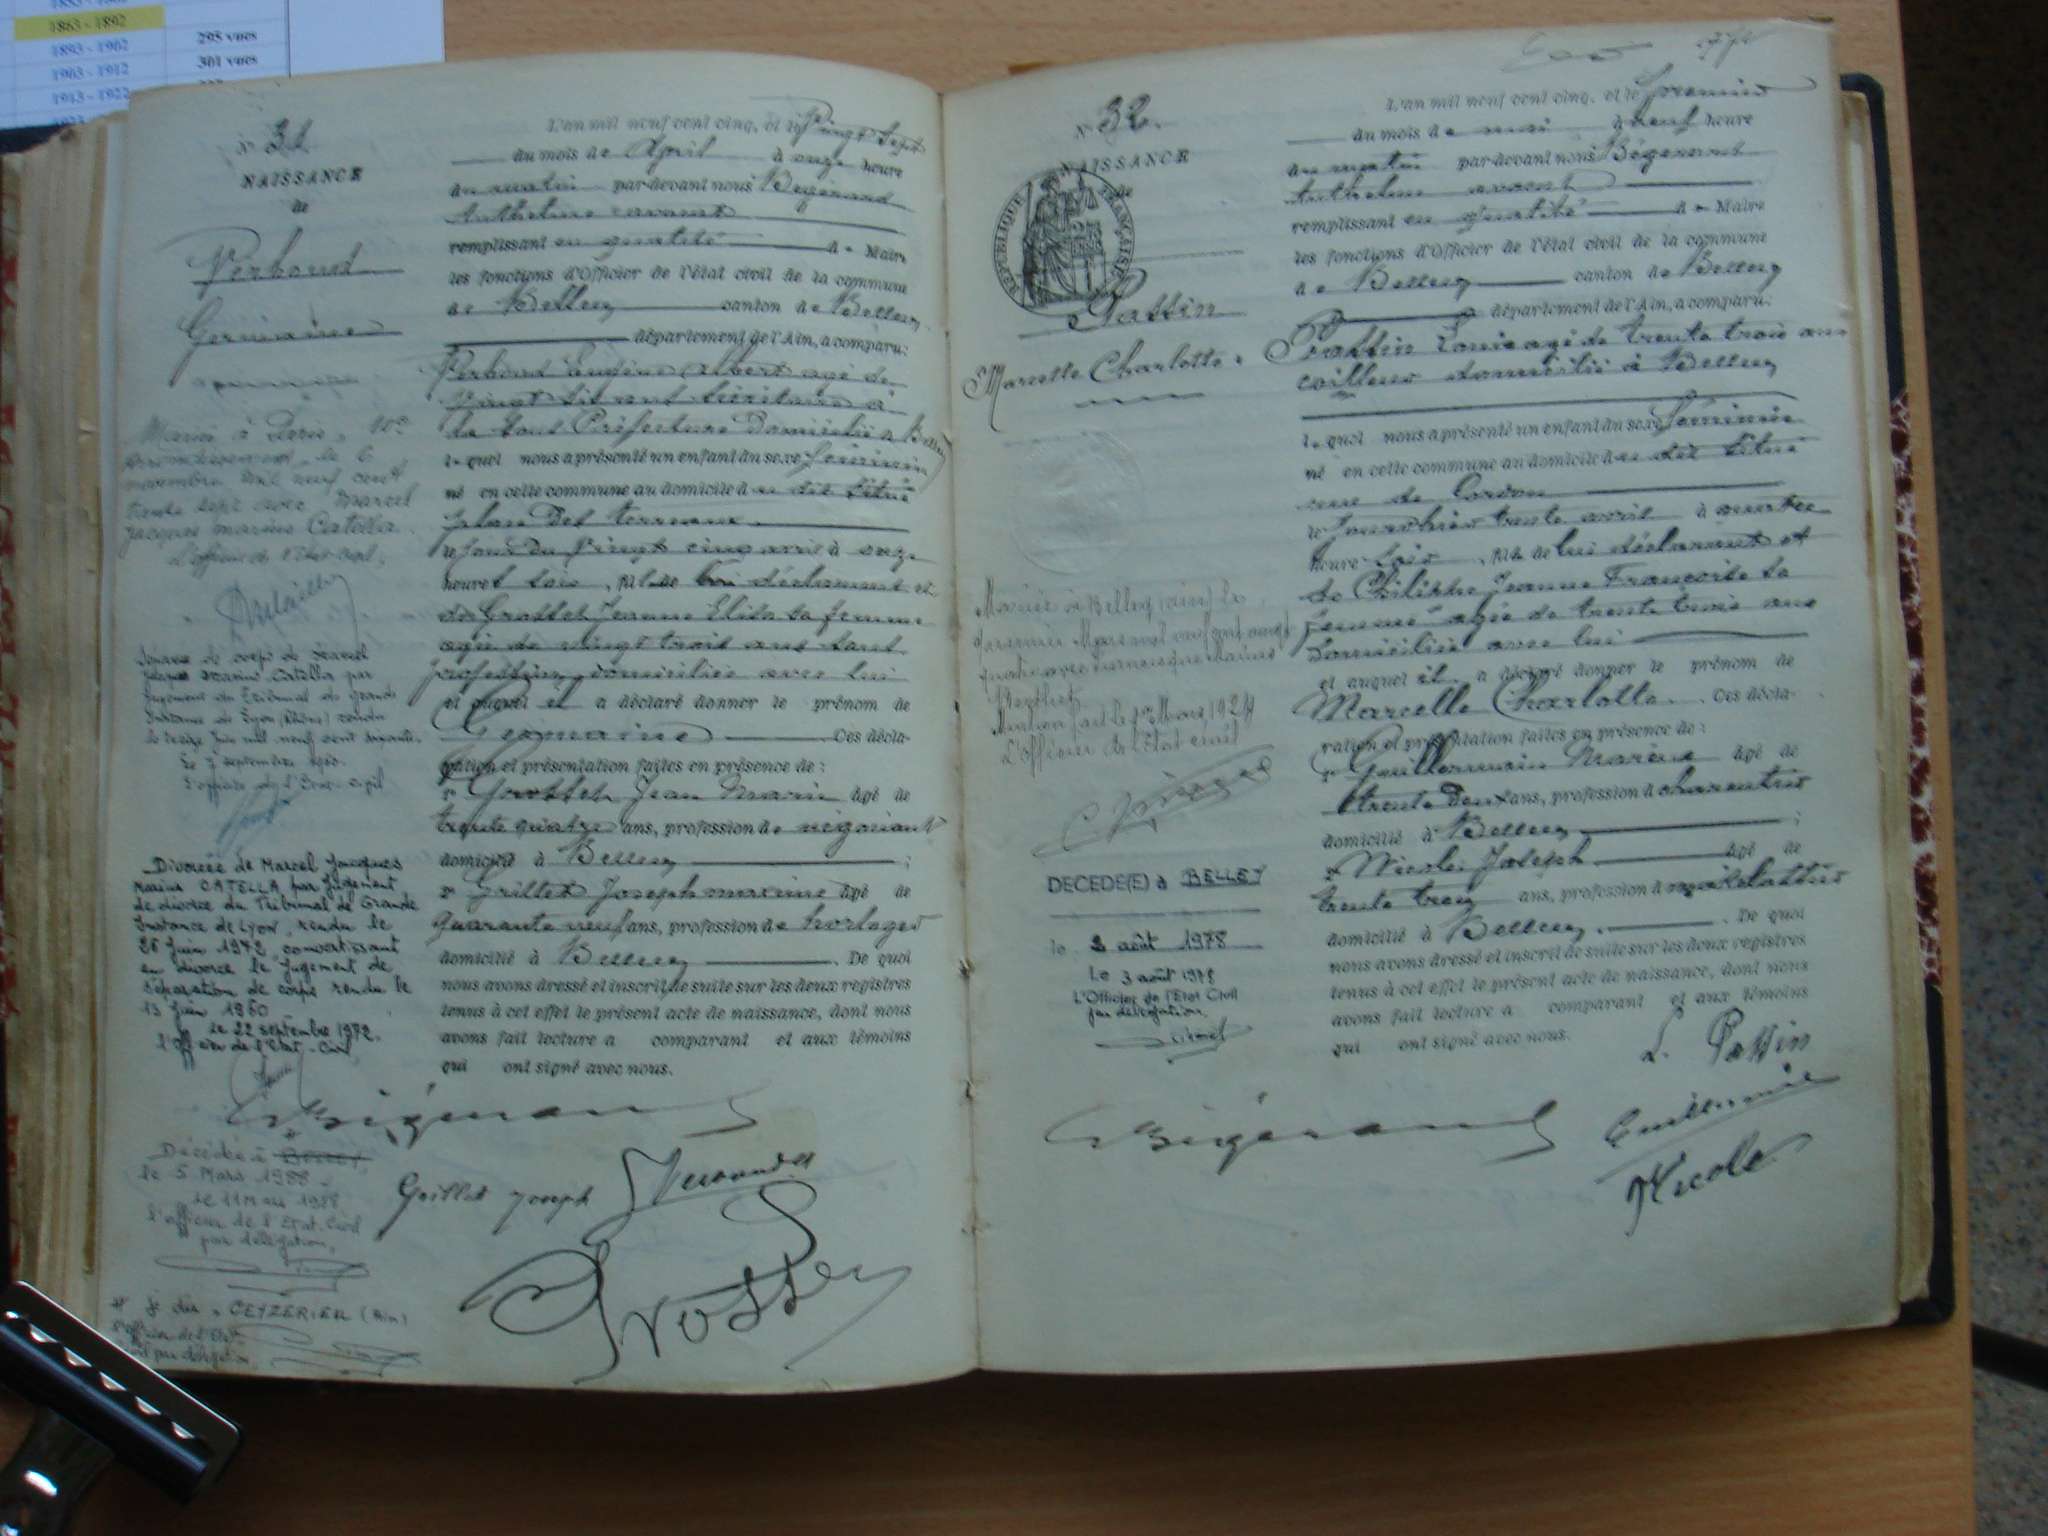 1863 - 1892
1893 - 1902
295 vues
1903 - 1912
301 vues
1913 - 1922
N° 31
NAISSANCE
de
Germaine
Marié à Paris, 10e
arrondissement, le 6
novembre mil neuf cent
trente sept avec Marcel
Jacques Marius Catella.
L'officier de l'Etat-Civil,
Séparée de corps de Marcel
Jacques Marius Catella par
jugement du Tribunal de Grande
Instance de Lyon (Rhône) rendu
le treize Juin mil neuf cent soixante.
Le 7 septembre 1960.
l'officier de l'Etat-civil
Divorcée de Marcel Jacques
Marius CATELLA par Jugement
de divorce du Tribunal de Grande
Instance de Lyon, rendu le
28 Juin 1972, convertissant
en divorce le Jugement de
séparation de corps rendu le
13 Juin 1960
le 22 septembre 1972.
l'Officier de l'Etat-Civil,
Décédée à Belley
le 5 Mars 1988
Le 11 Mars 1988
l'officier de l'Etat Civil
par délégation,
je dis CEYZERIEU (Ain)
l'officier de l'Etat
civil par délégation
L'an mil neuf cent cinq, et le Vingt Sept
du mois de Avril à onze heure
du matin par-devant nous Bégerand
Anthelme avocat
remplissant en qualité de Maire
les fonctions d'Officier de l'état civil de la commune
de Belley canton de Belley
département de l'Ain, a comparu:
Eugène Albert agé de
vingt six ans Secrétaire à
la Sous Préfecture Domicilié à Belley
lequel nous a présenté un enfant du sexe féminin
né en cette commune au domicile de sis situé
place des terreaux
le jour du vingt cinq avril à onze
heures soir, fille de lui déclarant et
de Grosset Jeanne Elisa sa femme
agée de vingt trois ans sans
profession, domiciliée avec lui
et auquel il a déclaré donner le prénom de
Germaine Ces décla-
ration et présentation faites en présence de:
1° Grosset Jean Marie âgé de
trente quatre ans, profession de négociant
domicilié à Belley ;
2° Grillet Joseph maxime âgé de
quarante neuf ans, profession de horloger
domicilié à Belley. De quoi
nous avons dressé et inscrit de suite sur les deux registres
tenus à cet effet le présent acte de naissance, dont nous
avons fait lecture a comparant et aux témoins
qui ont signé avec nous.
Grillet Joseph
Grosset
N° 32.
NAISSANCE
de
REPUBLIQUE FRANÇAISE
Passin
Marcelle Charlotte.
Mariée à Belley (Ain) le
premier Mars mil neuf cent vingt
quatre avec
Berthet
Mention faite le 1er Mars 1924
L'Officier de l'Etat civil
DECEDE(E) à BELLEY
le 2 août 1978
Le 3 août 1978
L'Officier de l'Etat Civil
par délégation,
L'an mil neuf cent cinq, et le Premier
du mois de mai à neuf heure
du matin par-devant nous Bégerand
Anthelme avocat
remplissant en qualité de Maire
les fonctions d'Officier de l'état civil de la commune
de Belley canton de Belley
département de l'Ain, a comparu:
Passin Louis agé de trente trois ans
coiffeur domicilié à Belley
lequel nous a présenté un enfant du sexe féminin
né en cette commune au domicile de sis situé
rue de Cordon
le jour d'hier trente avril à quatre
heure soir, fille de lui déclarant et
de Philippe Jeanne Françoise sa
femme agée de trente trois ans
domiciliée avec lui
et auquel il a déclaré donner le prénom de
Marcelle Charlotte. Ces décla-
ration et présentation faites en présence de:
1° Guillermin Marius âgé de
trente deux ans, profession de charcutier
domicilié à Belley ;
2° Nicole Joseph âgé de
trente trois ans, profession de matelassier
domicilié à Belley. De quoi
nous avons dressé et inscrit de suite sur les deux registres
tenus à cet effet le présent acte de naissance, dont nous
avons fait lecture a comparant et aux témoins
qui ont signé avec nous.
L. Passin
Guillermin
Nicole